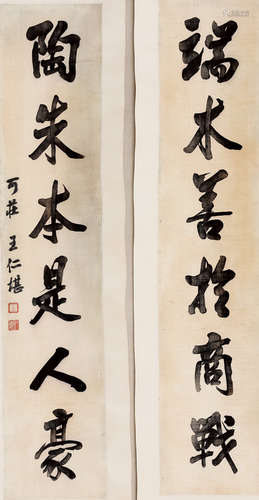 端木善於商戰
陶朱本是人豪
可莊王仁堪